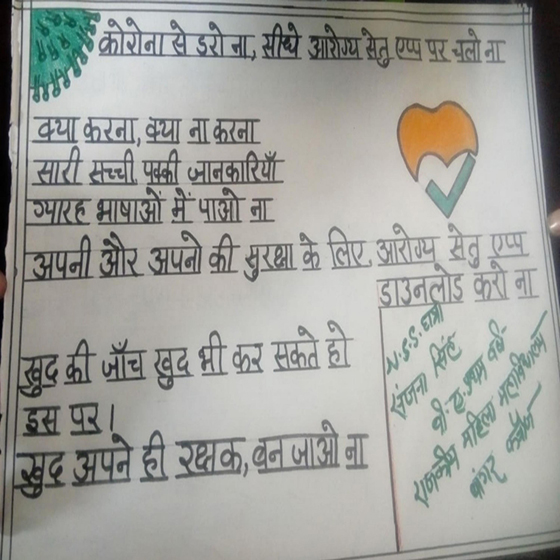 कोरोना से डरो ना, सीधे आरोग्य सेतु एप्प पर चलो ना
क्या करना, क्या ना करना
सारी सच्ची पक्की जानकारियाँ
ग्यारह भाषाओं में पाओ ना
अपनी और अपनो की सुरक्षा के लिए आरोग्य सेतु एप्प
डाउनलोड करो ना
खुद की जाँच खुद भी कर सकते हो
इस पर।
खुद अपने ही रक्षक, बन जाओ ना
N.S.S. छात्रा
संजना सिंह
बी.ए. प्रथम वर्ष
राजकीय महिला महाविद्यालय
बांगर कन्नौज